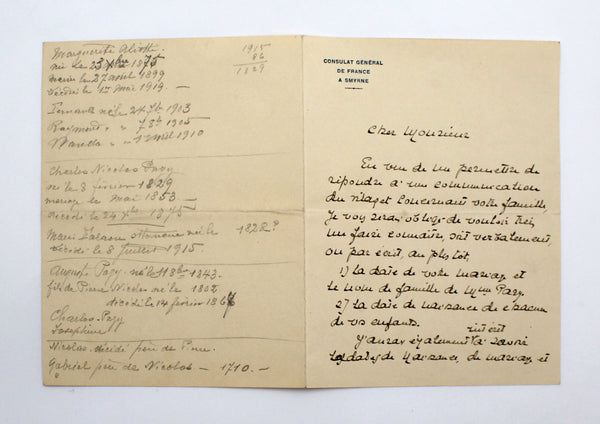 Marguerite Aliotti
née le 23 Xbre 1875
mariée 27 avril 1899
décédée 1er Mai 1919. —
1915
86
1829
Fernand né le 24 7b 1903
Raymond " " 7 8b 1905
Marcelle " " 1 Mai 1910
Charles Nicolas Pagy
né le 3 février 1829
mariage le Mai 1853
décédé le 24 Xbre 1875
Marie née le 1822?
décédée le 8 Juillet 1915.
Auguste Pagy né le 11 8bre 1843.
fils de Pierre Nicolas né le 1802
décédé le 14 février 1867
Charles Pagy
Joséphine
Nicolas décédé père de Pierre.
Gabriel père de Nicolas — 1710. —
CONSULAT GÉNÉRAL
DE FRANCE
A SMYRNE
Cher Monsieur
En vue de me permettre de
répondre à une communication
du relative concernant votre famille,
Je vous serais obligé de vouloir bien
me faire connaître, soit verbalement,
ou par écrit, au plus tôt,
1) la date de votre mariage et
le nom de famille de Mme Pagy.
2) la date de naissance de chacun
de vos enfants.
intérêt
J'aurai également à savoir
les dates de naissance, de mariage, et